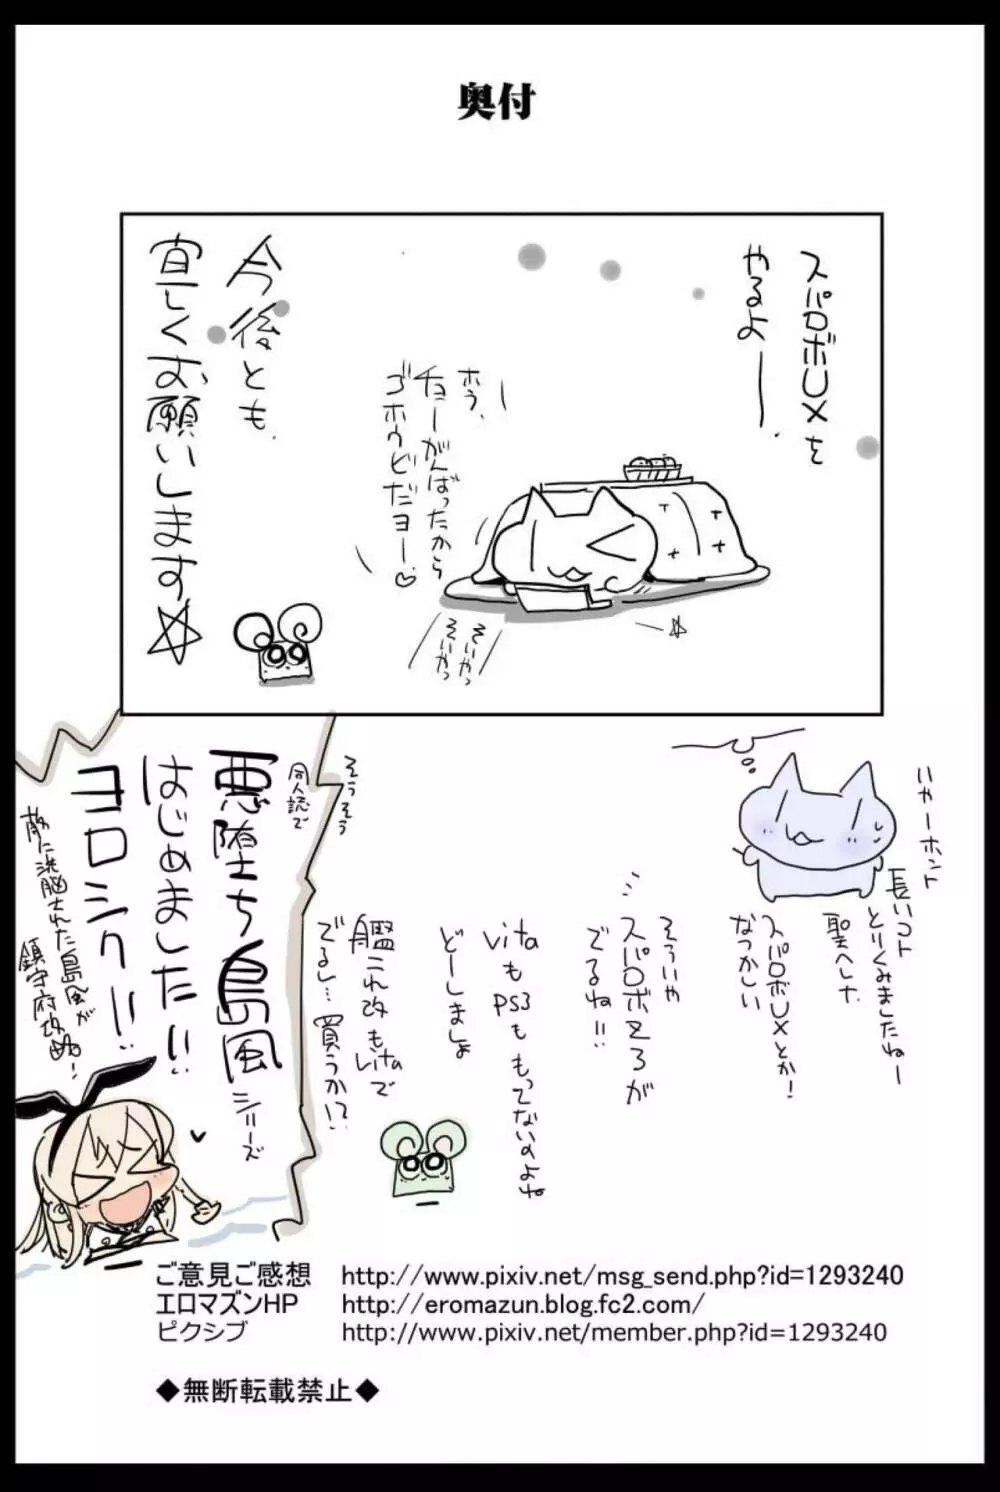 奥付
スパロボUXを
やるよー。
ホラ、
チョーがんばったから
ゴホウビだヨー♡
そいやっ
そいやっ
今後とも、
宜しくお願いします☆
いやーホント
長いコト
とりくみましたねー
聖天レナ
スパロボUXとか!
なつかしい
そういや
スパロボZ3が
でるね!!
vitaも
PS3も もってないのよね
どーしましょ
艦これ改もvitaで
でるし… 買うか!?
そうそう
同人誌で
悪堕ち島風シリーズ
はじめました!!
ヨロシク!!
敵に洗脳された島風が
鎮守府攻略!
ご意見ご感想 http://www.pixiv.net/msg_send.php?id=1293240
エロマズンHP http://eromazun.blog.fc2.com/
ピクシブ http://www.pixiv.net/member.php?id=1293240
◆無断転載禁止◆